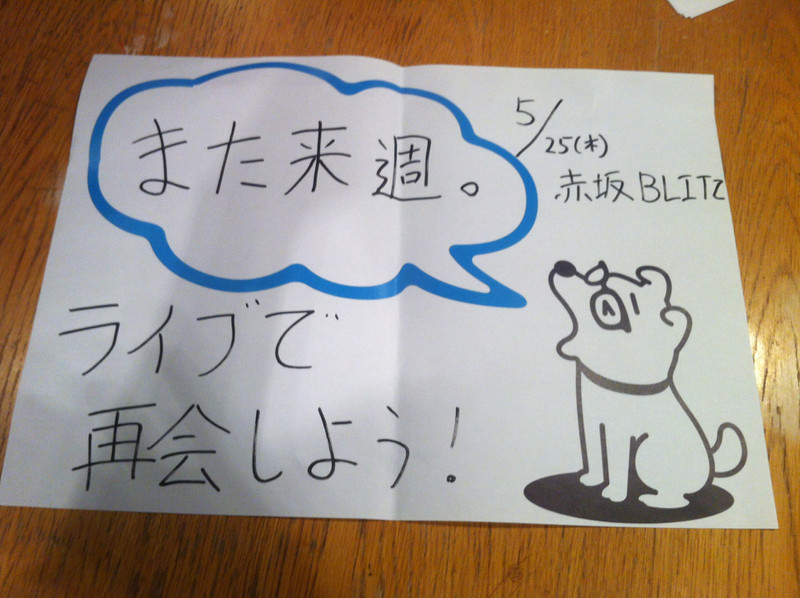 また来週。
5/25(木)
赤坂BLITZ
ライブで
再会しよう!